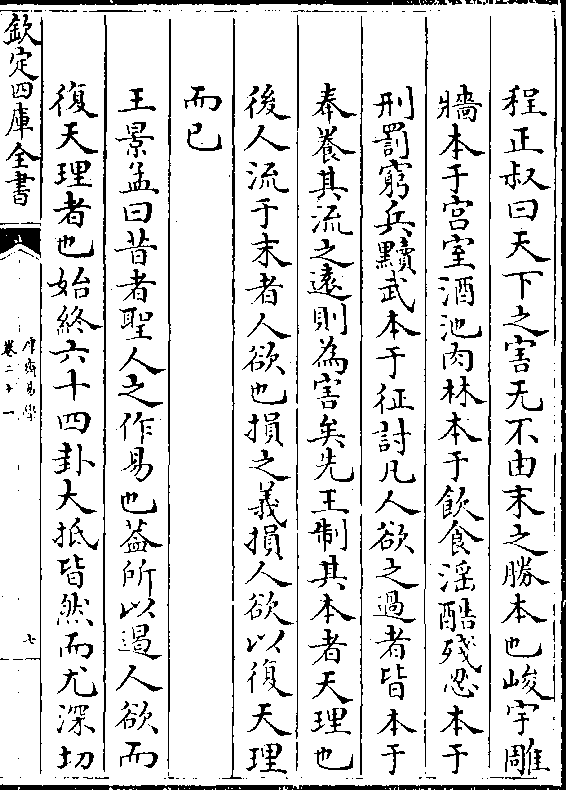 程正叔曰天下之害无不由末之勝本也峻宇雕
牆本于宫室酒池肉林本于飲食淫酷殘忍本于
刑罰窮兵黷武本于征討凡人欲之過者皆本于
奉養其流之遠則為害矣先王制其本者天理也
後人流于末者人欲也損之義損人欲以復天理
而已
王景孟曰昔者聖人之作易也葢所以遏人欲而
復天理者也始終六十四卦大抵皆然而尤深切
欽定四庫全書
厚齋易學
卷二十一
七